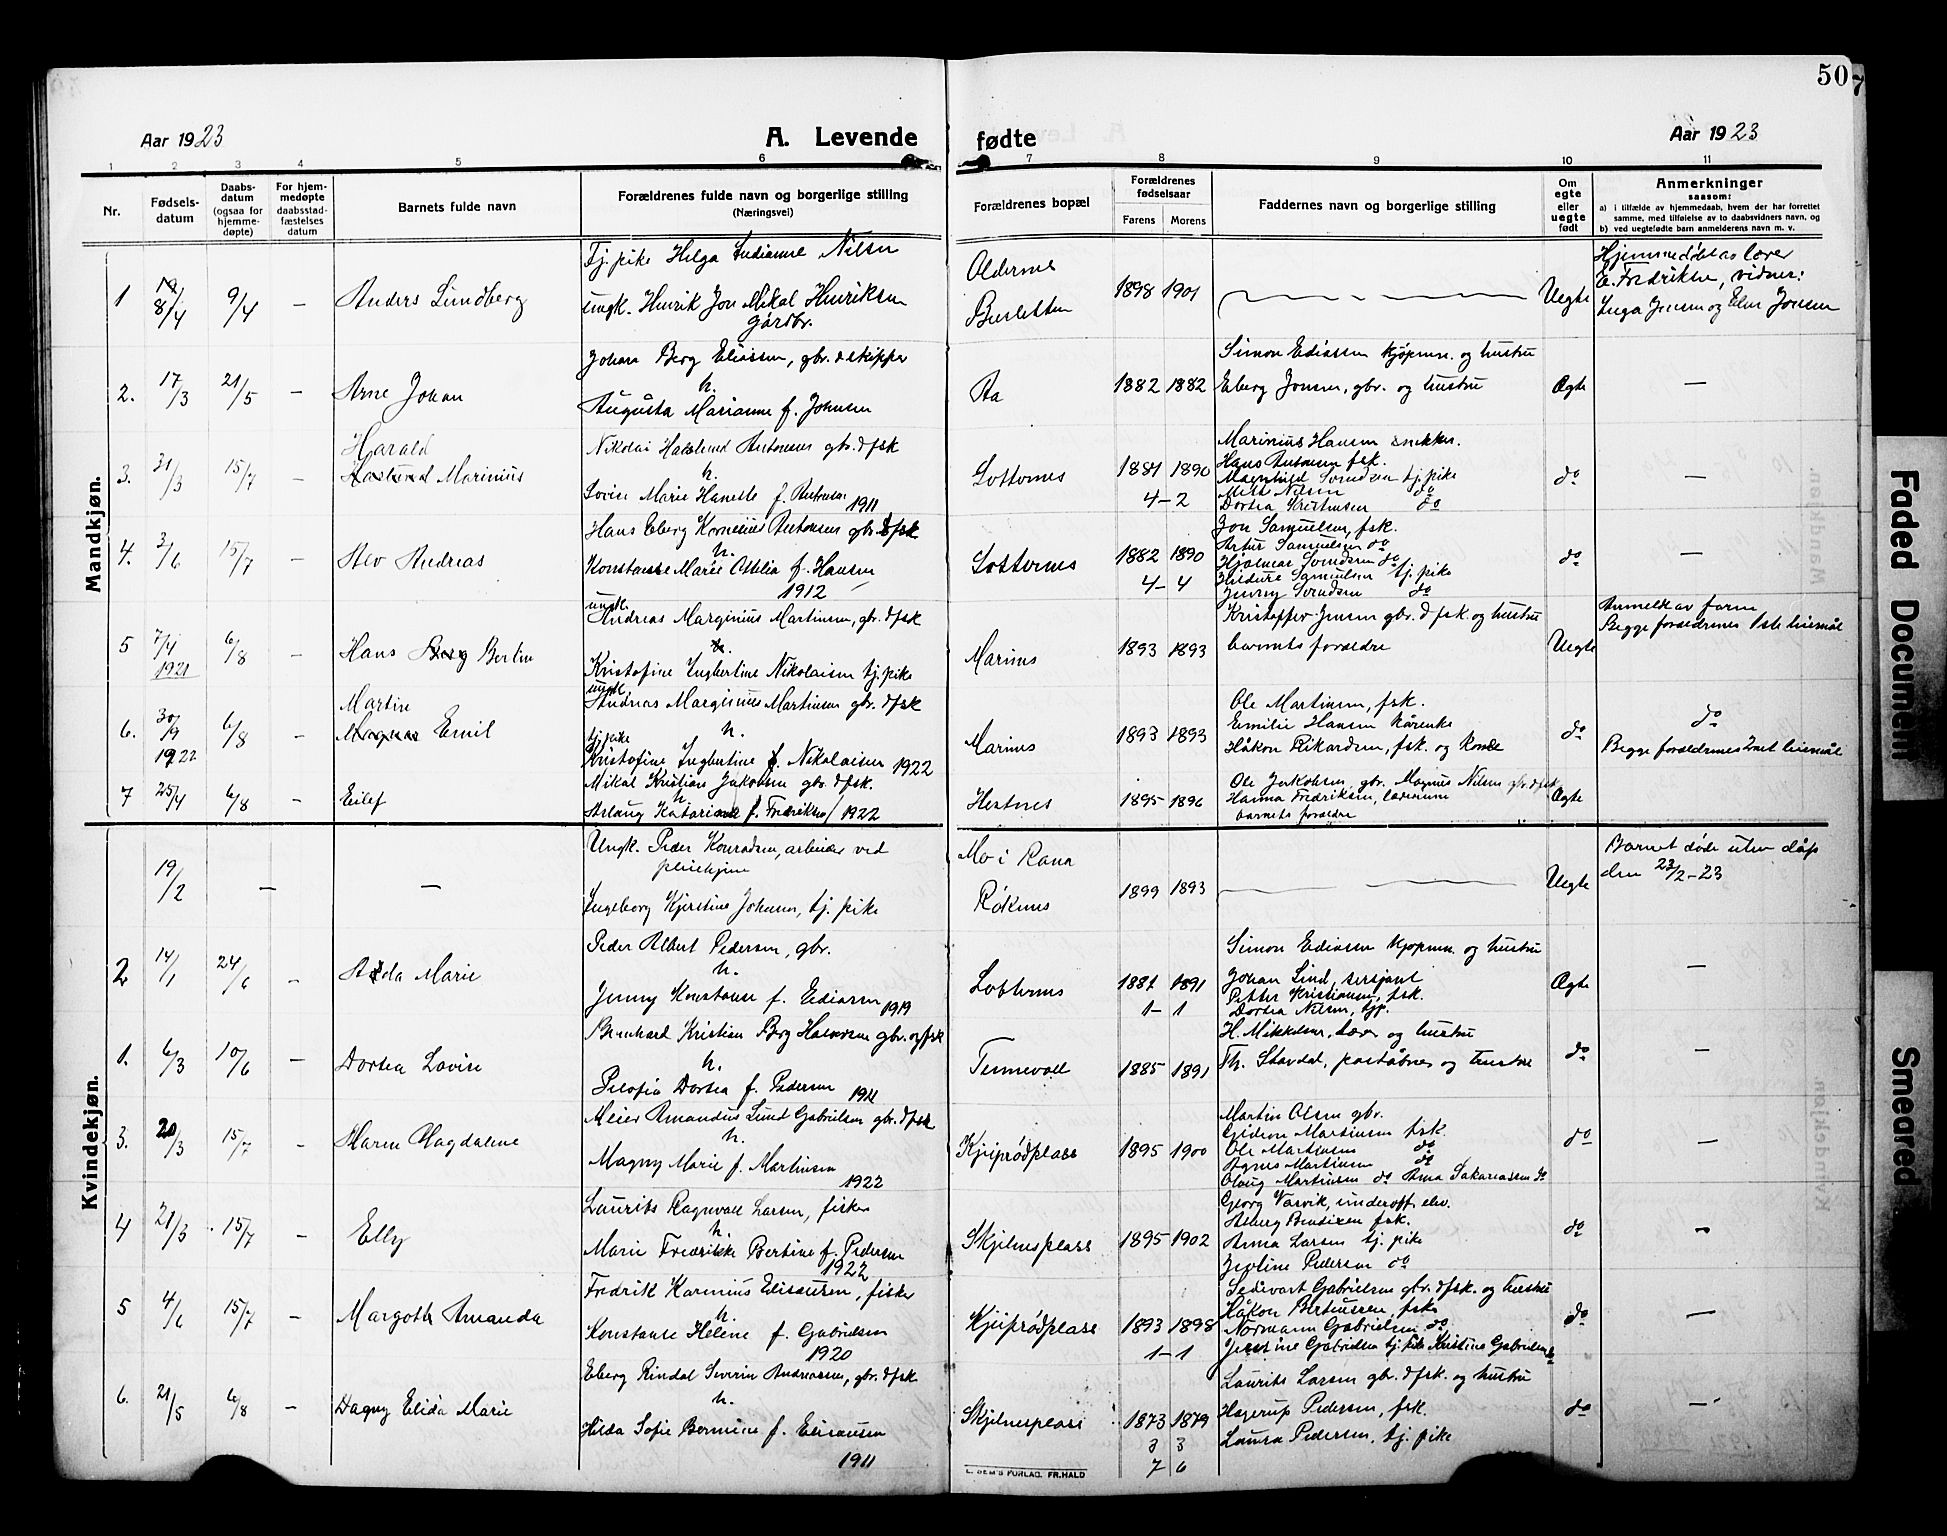 50
Aar 1923
A. Levende
fødte
Aar 1923
1 2 3 4 5 6 7 8 9 10 11
Nr.
Fødsels-
datum
Daabs-
datum
(ogsaa for
hjemme-
døpte)
For hjem-
medøpte
daabsstad-
fæstelses
datum
Barnets fulde navn
Forældrenes fulde navn og borgerlige stilling
(Næringsvei)
Forældrenes bopæl
Forældrenes
fødselsaar
Farens Morens
Faddernes navn og borgerlige stilling
Om
egte
eller
uegte
født
Anmerkninger
saasom:
a) i tilfælde av hjemmedaab, hvem der har forrettet
samme, med tilføielse av to daabsvidners navn, og
b) ved uegtefødte barn anmelderens navn m. v.
Mandkjøn.
Tj. pike Helga Nilsen
1 8/4 9/4 — Anders Lundberg
ungk. Henrik Jon Mikal Henriksen
gårdbr.
1898 1901
Uegte
Hjemmedøbt av lærer
E. Fredriksen, vidner:
Inga Jensen og Elen Jonsen
Johan Berg Eliassen, gbr. & skipper
2. 17/3 21/5 — Arne Johan
h.
Augusta Marianne f. Johnsen
Aa
1882 1882
Simon Ediassen kjøpmn. og hustru
Eberg Jonsen, gbr. og hustru
Ægte —
Harald
3. 31/3 15/7 — Marinius
Nikolai Haslund Antonsen gbr. & fsk
h.
Lovise Marie Hanette f. Antonsen
1911
1884 1890
4–2
Marinius Hansen snekker.
Hans Antonsen fsk.
tj. pike
Nilsen do
Dortea Kristensen do
do —
Hans Eberg Kornelius Antonsen gbr. & fsk
4. 3/6 15/7 — Andreas
h.
Konstanse Marie Ottilia f. Hansen
1912
1882 1890
4–4
Jon Samuelsen, fsk.
Artur Samuelsen do
Hjalmar Svendsen do
Samuelsen tj. pike
Jenny Svendsen do
do —
ungk.
Andreas Marginius Martinsen, gbr. & fsk
5 7/4 1921 6/8 Hans Berg Bertin
h.
Kristofine Ingbertine Nikolaisen tj. pike
Marines
1893 1893
Kristoffer Jensen gbr. & fsk. og hustru
barnets forældre
Uegte
Anmeldt av faren
Begge forældrenes 1ste leiemål
Martin
6. 30/9 1922 6/8 — Magnus Emil
ungk.
Andreas Marginius Martinsen gbr. & fsk
h.
tj. pike
Kristofine Ingbertine f. Nikolaisen 1922
Marines
1893 1893
Ole Martinsen, fsk.
Emilie Hansen kårenke
Håkon Rikardsen, fsk. og kone
do
do
Begge forældrenes 2net leiemål
7 25/4 6/8 — Eilef
Mikal Kristian Jakobsen gbr. & fsk.
h.
Aslaug Katarina f. Fredriksen 1922
Hestnes
1895 1896
Ole Jakobsen, gbr. Magnus Nilsen gbr. & fsk
Hanna Fredriksen, lærerinne
barnets forældre
Ægte
Kvindekjøn.
19/2 — —
Ungk. Peder Konradsen, arbeider ved
Ingeborg Kjerstine Johnsen, tj. pike
Mo i Rana
Røknes
1899 1893
Uegte
Barnet døde uten dåp
den 23/2–23
Peder Albert Pedersen, gbr.
2 14/1 24/6 — Alda Marie
h.
Jenny Konstanse f. Ediassen 1919
1881 1891
1–1
Simon Ediassen kjøpmn. og hustru
Johan Lind, sersjant
Petter Kristiansen, fsk.
Dortea Nilsen, tjp.
Ægte —
Bernhard Kristian Berg Halvorsen gbr. og fsk
1. 6/3 10/6 — Dortea Lovise
h.
Dortea f. Pedersen 1911
Tennevoll
1885 1891
H. Mikkelsen, lærer og hustru
Th. Stavdal, poståbner og hustru
do —
Meier Amandus Lund Gabrielsen gbr. & fsk
3. 20/3 15/7 — Karen Magdalene
h.
Magny Marie f. Martinsen
1922
Kjeiprødplass
1895 1900
Martin Olsen gbr.
Gideon Martinsen fsk.
Ole Martinsen do
Agnes Martinsen do
Olaug Martinsen do Anna Sakariassen do
do —
Laurits Ragnvald Larsen, fisker
4 21/3 15/7 — Elly
h.
Marie Fredrikke Bertine f. Pedersen
1922
Skjelnesplass
1895 1902
Georg Vasvik, underoff. elev.
Asberg Bendixen fsk.
Anna Larsen tj. pike
Pedersen do
do —
Fredrik Karinius Elisæusen, fisker
5 4/6 15/7 — Margoth Amanda
h.
Konstanse Helene f. Gabrielsen
1920
Kjeiprødplass
1893 1898
1–1
Sedevart Gabrielsen gbr. & fsk. og hustru
Håkon Berteussen, fsk.
Normann Gabrielsen do
Jensine Gabrielsen tj. pike Kristine Gabrielsen do
do —
Eberg Rindal Severin Andreassen, gbr. & fsk.
6. 21/5 6/8 — Dagny Elida Marie
h.
Hilda Sofie Bernine f. Elisæusen
1911
Skjelnesplass
1873 1879
3 3
7 6
Laurits Larsen gbr. & fsk. og hustru
Hagerup Pedersen, fsk.
Laura Pedersen, tj. pike
do —
E. SEM'S FORLAG. FR.HALD
Faded Document
Smeared